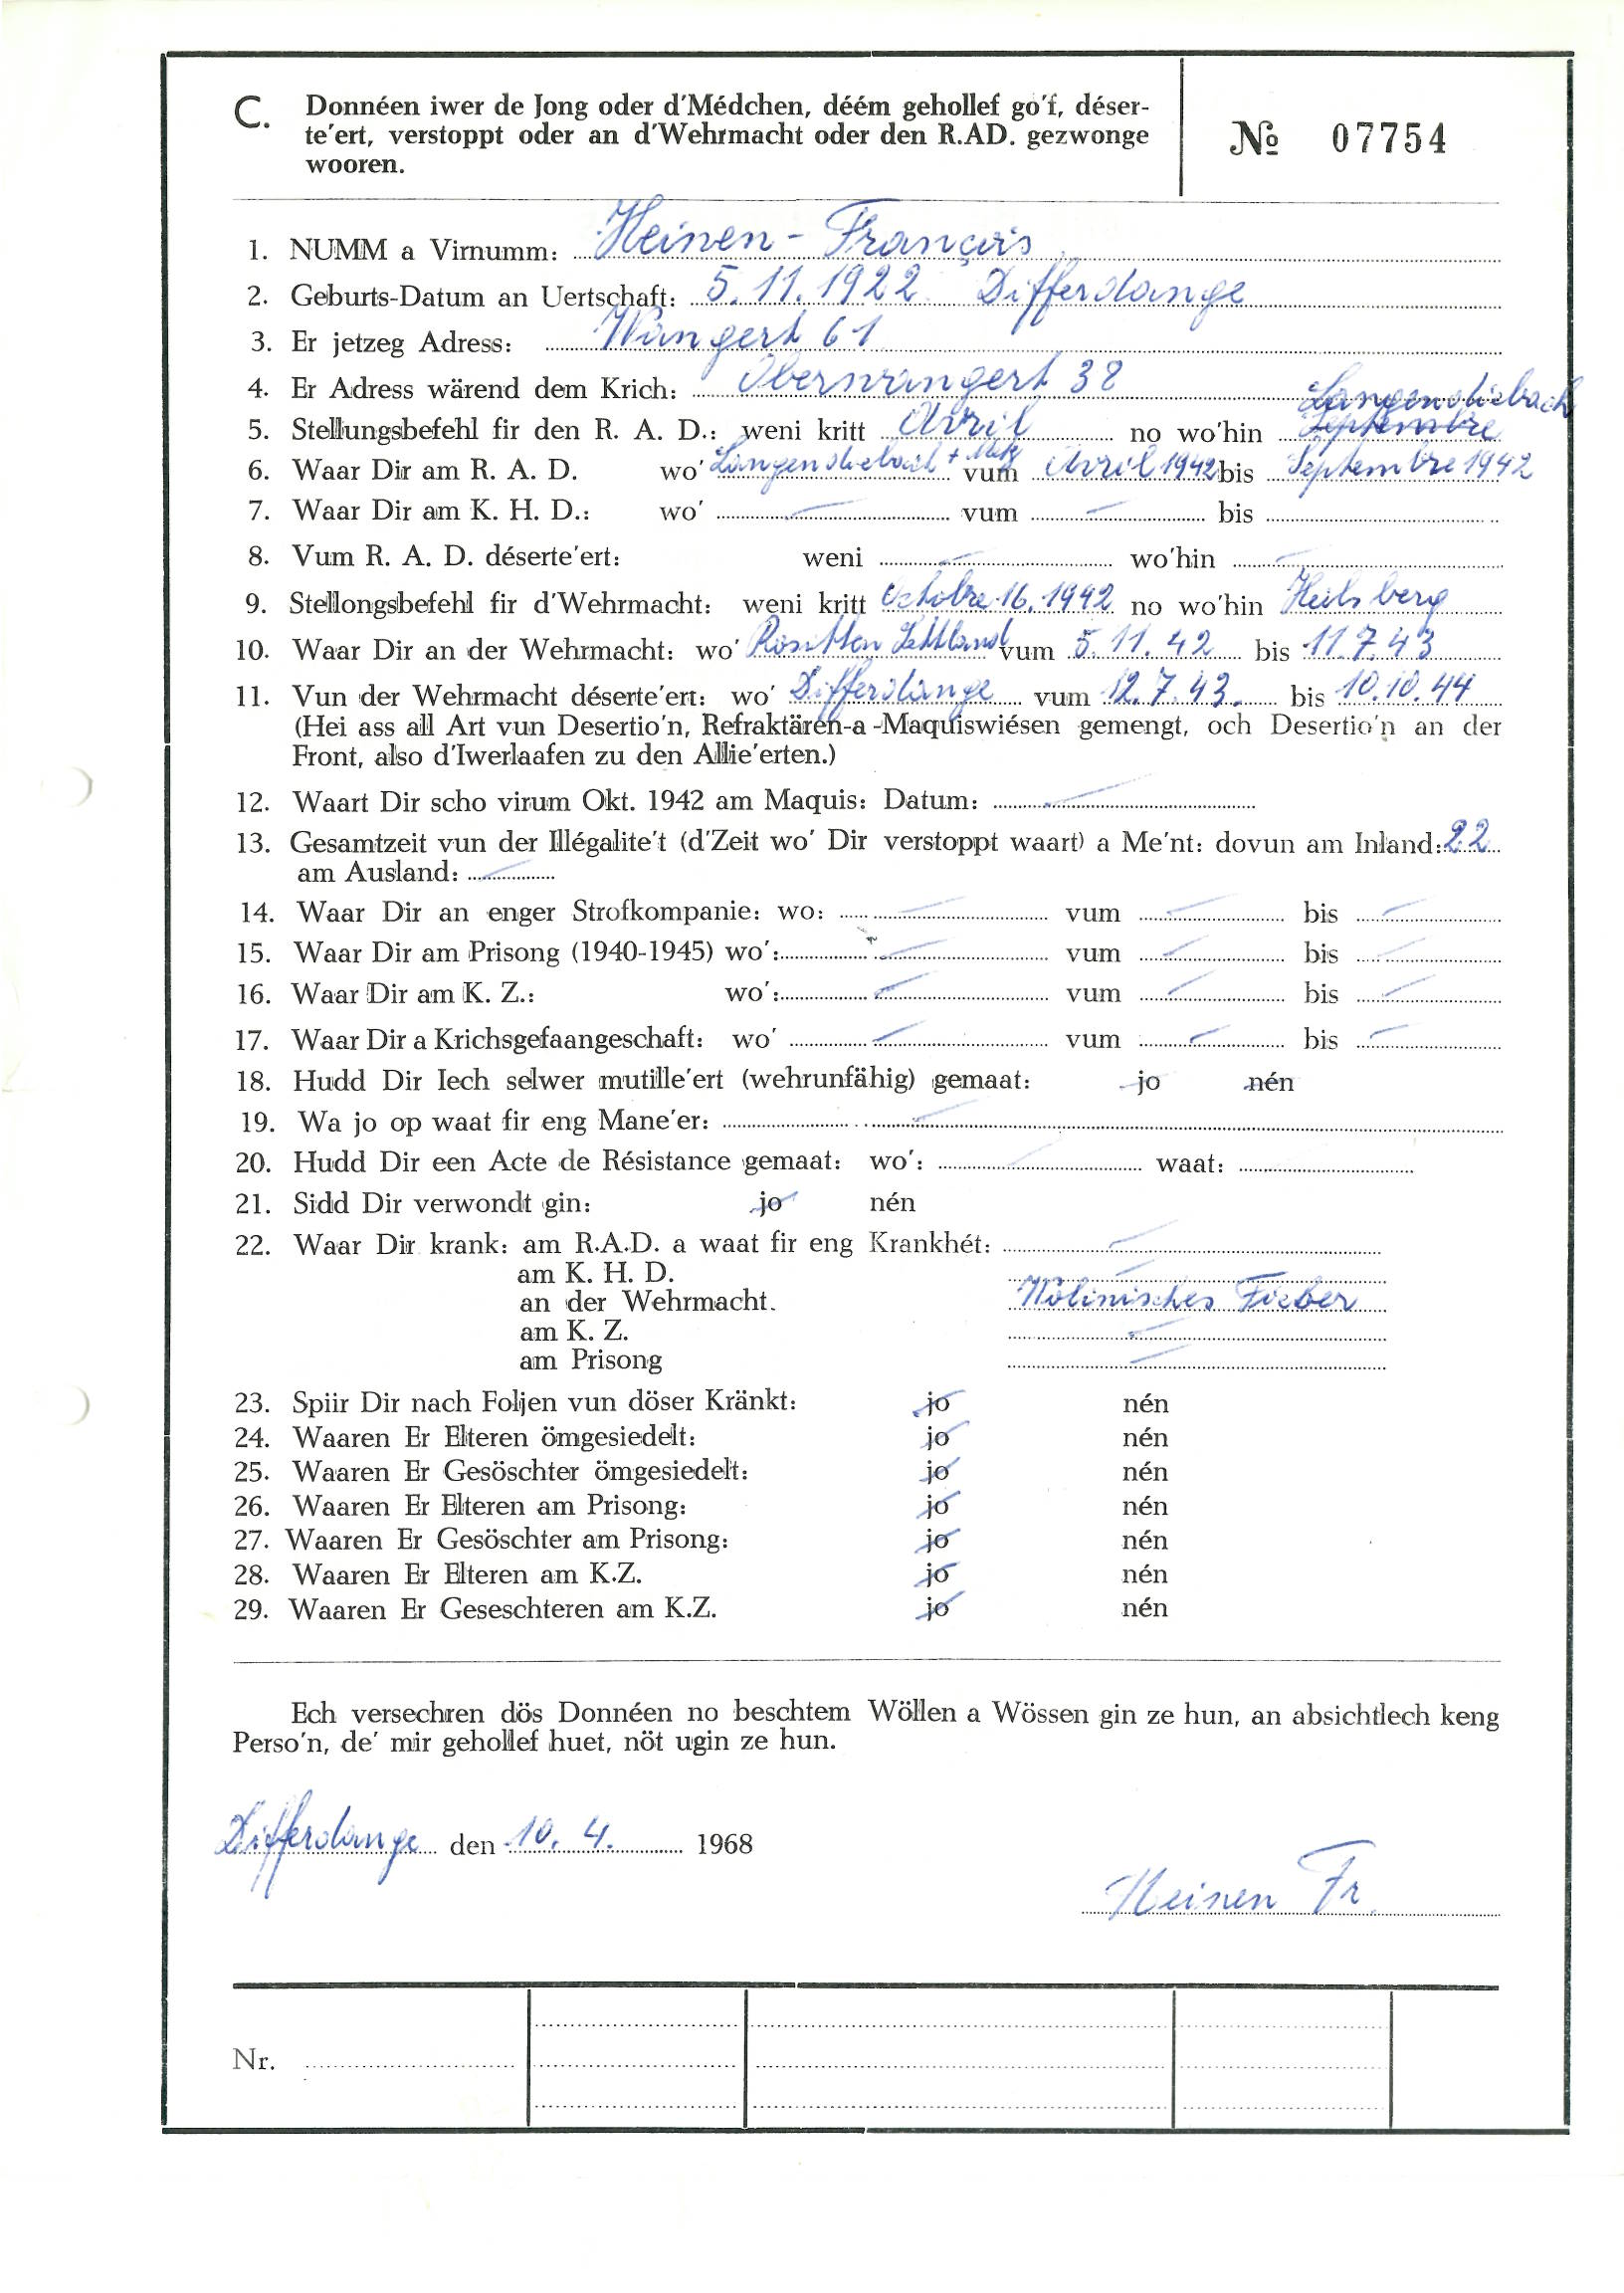 C. Donnéen iwer de Jong oder d'Médchen, déém gehollef go'f, déser-
te'ert, verstoppt oder an d'Wehrmacht oder den R.AD. gezwonge
wooren.
№ 07754
1. NUMM a Virnumm: Heinen - François
2. Geburts-Datum an Uertschaft: 5.11.1922 Differdange
3. Er jetzeg Adress: Wangert 61
4. Er Adress wärend dem Krich: Oberwangert 38
Langendiebach
5. Stellungsbefehl fir den R. A. D.: weni kritt Avril no wo'hin Septembre
6. Waar Dir am R. A. D. wo' Langendiebach + Metz vum Avril 1942 bis Septembre 1942
7. Waar Dir am K. H. D.: wo' — vum — bis
8. Vum R. A. D. déserte'ert: weni — wo'hin —
9. Stellongsbefehl fir d'Wehrmacht: weni kritt Octobre 16.1942 no wo'hin Heilsberg
10. Waar Dir an der Wehrmacht: wo' Rositten Lettland vum 5.11.42 bis 11.7.43
11. Vun der Wehrmacht déserte'ert: wo' Differdange vum 12.7.43. bis 10.10.44
(Hei ass all Art vun Desertio'n, Refraktären-a-Maquiswiésen gemengt, och Desertio'n an der
Front, also d'Iwerlaafen zu den Allie'erten.)
12. Waart Dir scho virum Okt. 1942 am Maquis: Datum: —
13. Gesamtzeit vun der Illégalite't (d'Zeit wo' Dir verstoppt waart) a Me'nt: dovun am Inland: 22
am Ausland: —
14. Waar Dir an enger Strofkompanie: wo: — vum — bis —
15. Waar Dir am Prisong (1940-1945) wo': — vum — bis —
16. Waar Dir am K. Z.: wo': — vum — bis —
17. Waar Dir a Krichsgefaangeschaft: wo' — vum — bis —
18. Hudd Dir Iech selwer mutille'ert (wehrunfähig) gemaat: jo nén
19. Wa jo op waat fir eng Mane'er: —
20. Hudd Dir een Acte de Résistance gemaat: wo': — waat:
21. Sidd Dir verwondt gin: jo nén
22. Waar Dir krank: am R.A.D. a waat fir eng Krankhét: —
am K. H. D. —
an der Wehrmacht. Wolinisches Fieber
am K. Z. —
am Prisong —
23. Spiir Dir nach Foljen vun döser Kränkt: jo nén
24. Waaren Er Elteren ömgesiedelt: jo nén
25. Waaren Er Gesöschter ömgesiedelt: jo nén
26. Waaren Er Elteren am Prisong: jo nén
27. Waaren Er Gesöschter am Prisong: jo nén
28. Waaren Er Elteren am K.Z. jo nén
29. Waaren Er Geseschteren am K.Z. jo nén
Ech versechren dös Donnéen no beschtem Wöllen a Wössen gin ze hun, an absichtlech keng
Perso'n, de' mir gehollef huet, nöt ugin ze hun.
Differdange den 10. 4. 1968
Heinen Fr.
Nr.